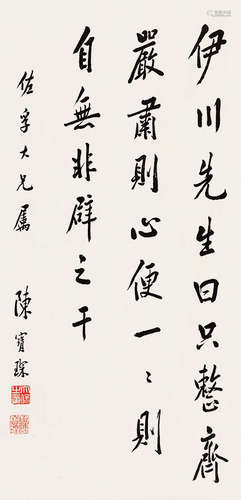 伊川先生曰只整齊
嚴肅則心便一〻則
自無非辟之干
佐孚大兄屬
陳寶琛